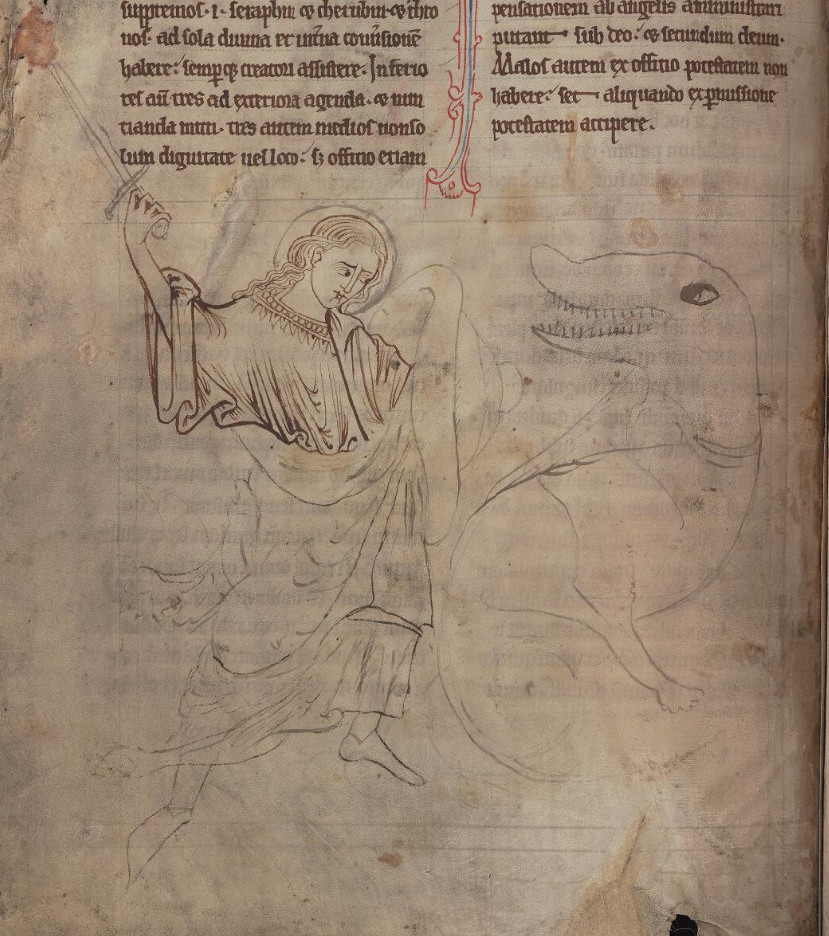 supremos .i. seraphin & cherubin & thro
nos. ad sola diuina et intima
habere: semperque creatori assistere. Inferio
res au tres ad exteriora agenda. & nun
tianda mitti. tres autem medios non so
lum dignitate uel loco: officio etiam
pensationem ab angelis amministrari
putant sub deo: & secundum deum.
Malos autem ex officio potestatem non
habere: set aliquando ex pmissione
potestatem accipere.